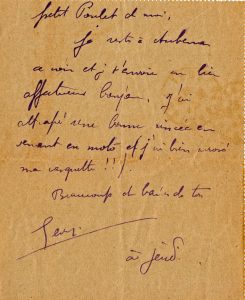 petit Poulet d moi,
Je reste à Aubenas
a voir et j t'envoie un bien
affectueux bonjour. J'ai
attrapé une bonne rincée en
venant en moto et j'ai bien arrosé
ma casquette !!!
Beaucoup de baisers de ton
à jeudi.